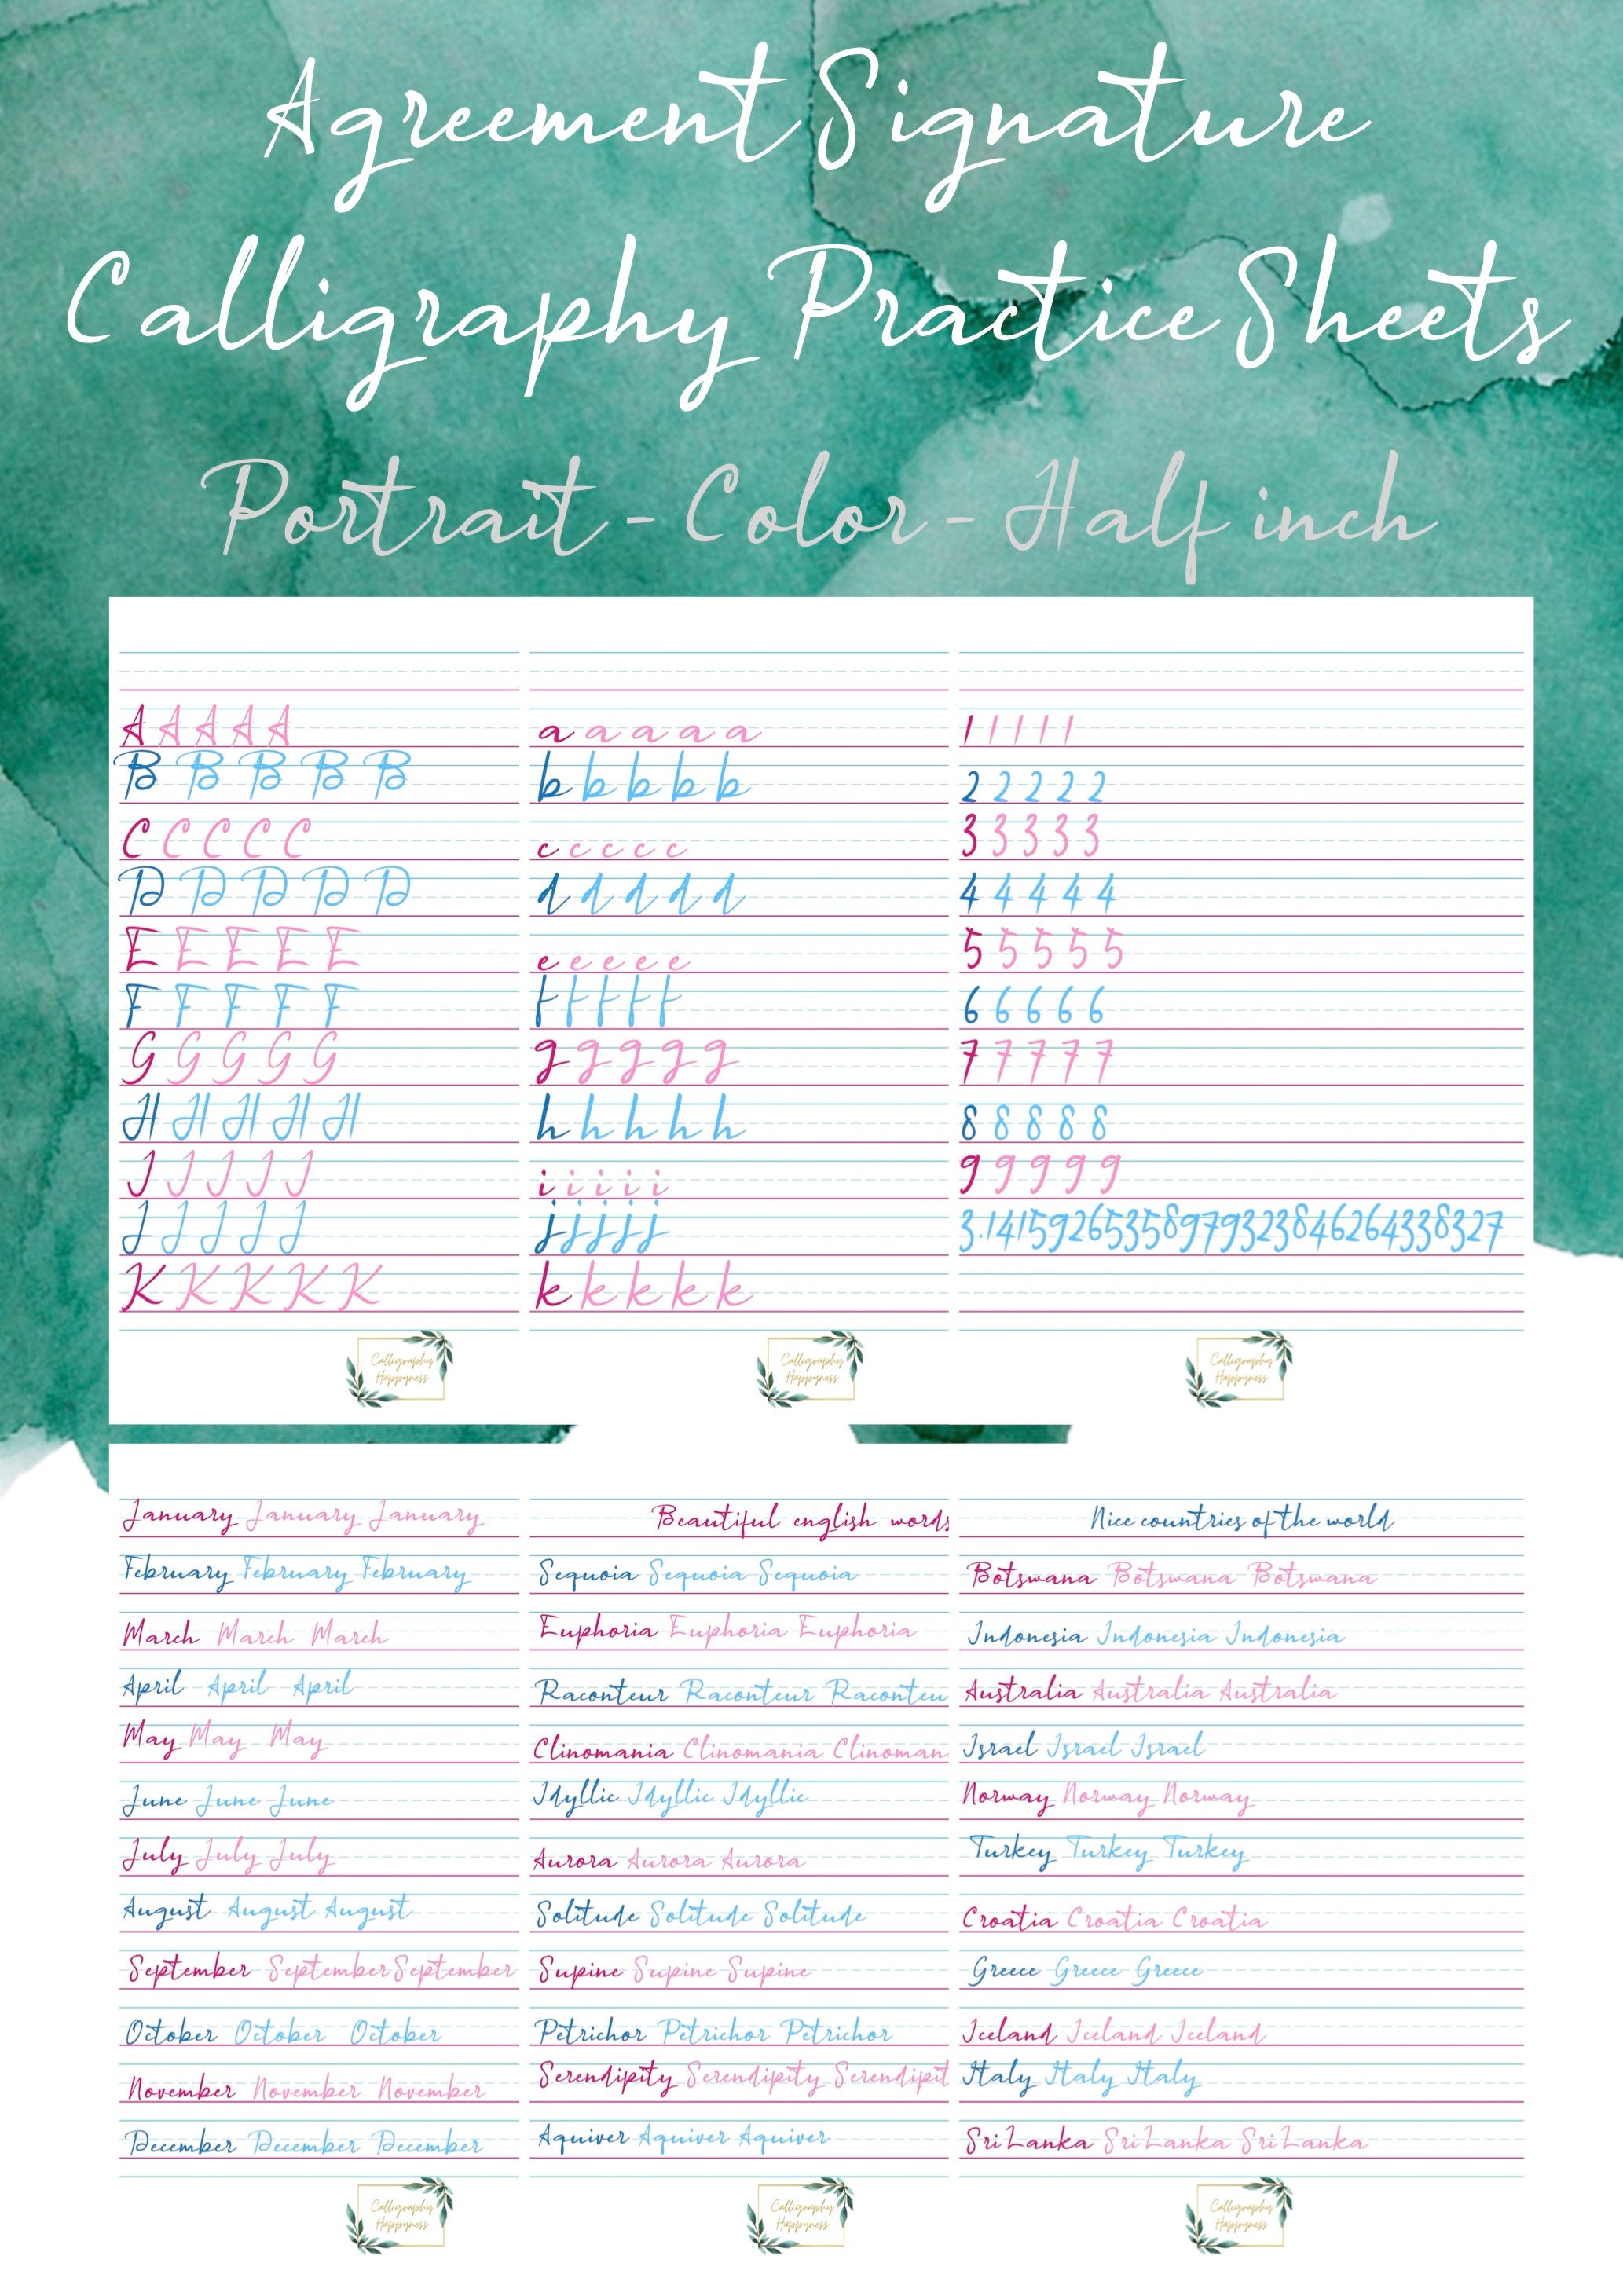 Agreement Signature
Calligraphy Practice Sheets
Portrait - Color - Half inch
A A A A A
B B B B B
C C C C C
D D D D D
E E E E E
F F F F F
G G G G G
H H H H H
I I I I I
J J J J J
K K K K K
Calligraphy
Happyness
a a a a a
b b b b b
c c c c c
d d d d d
e e e e e
f f f f f
g g g g g
h h h h h
i i i i i
j j j j j
k k k k k
Calligraphy
Happyness
1 1 1 1 1
2 2 2 2 2
3 3 3 3 3
4 4 4 4 4
5 5 5 5 5
6 6 6 6 6
7 7 7 7 7
8 8 8 8 8
9 9 9 9 9
3.141592653589793238462643383​27
Calligraphy
Happyness
January January January
February February February
March March March
April April April
May May May
June June June
July July July
August August August
September September September
October October October
November November November
December December December
Calligraphy
Happyness
Beautiful english words
Sequoia Sequoia Sequoia
Euphoria Euphoria Euphoria
Raconteur Raconteur Raconteu
Clinomania Clinomania Clinoman
Idyllic Idyllic Idyllic
Aurora Aurora Aurora
Solitude Solitude Solitude
Supine Supine Supine
Petrichor Petrichor Petrichor
Serendipity Serendipity Serendipit
Aquiver Aquiver Aquiver
Calligraphy
Happyness
Nice countries of the world
Botswana Botswana Botswana
Indonesia Indonesia Indonesia
Australia Australia Australia
Israel Israel Israel
Norway Norway Norway
Turkey Turkey Turkey
Croatia Croatia Croatia
Greece Greece Greece
Iceland Iceland Iceland
Italy Italy Italy
Sri Lanka Sri Lanka Sri Lanka
Calligraphy
Happyness